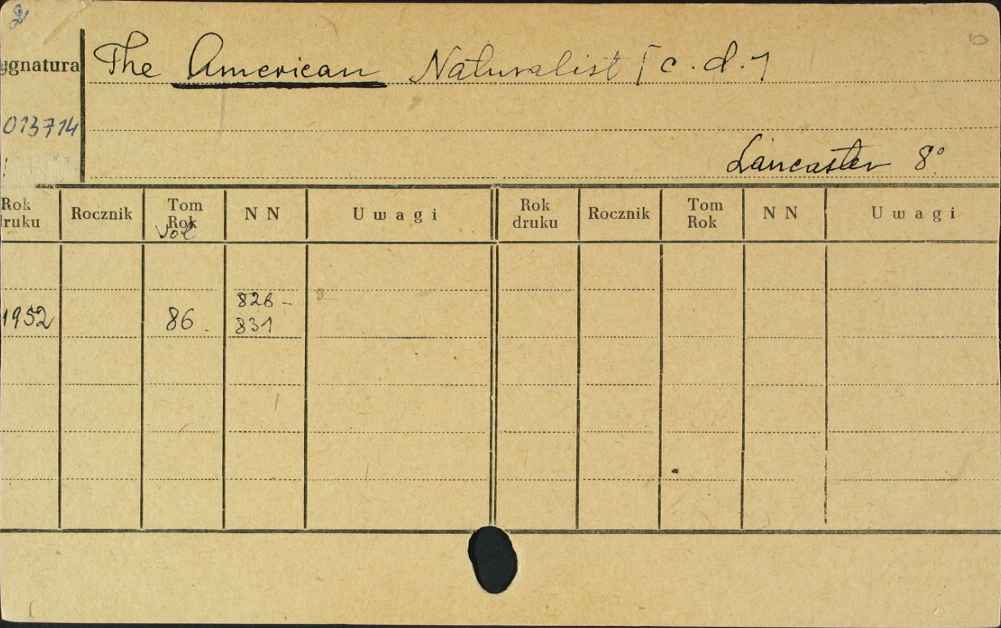 ygnatura The American Naturalist [c.d.]
013714
Lancaster 8°
Rok druku Rocznik Tom Rok vol N N Uwagi Rok druku Rocznik Tom Rok N N Uwagi
1952 86. 826-
831